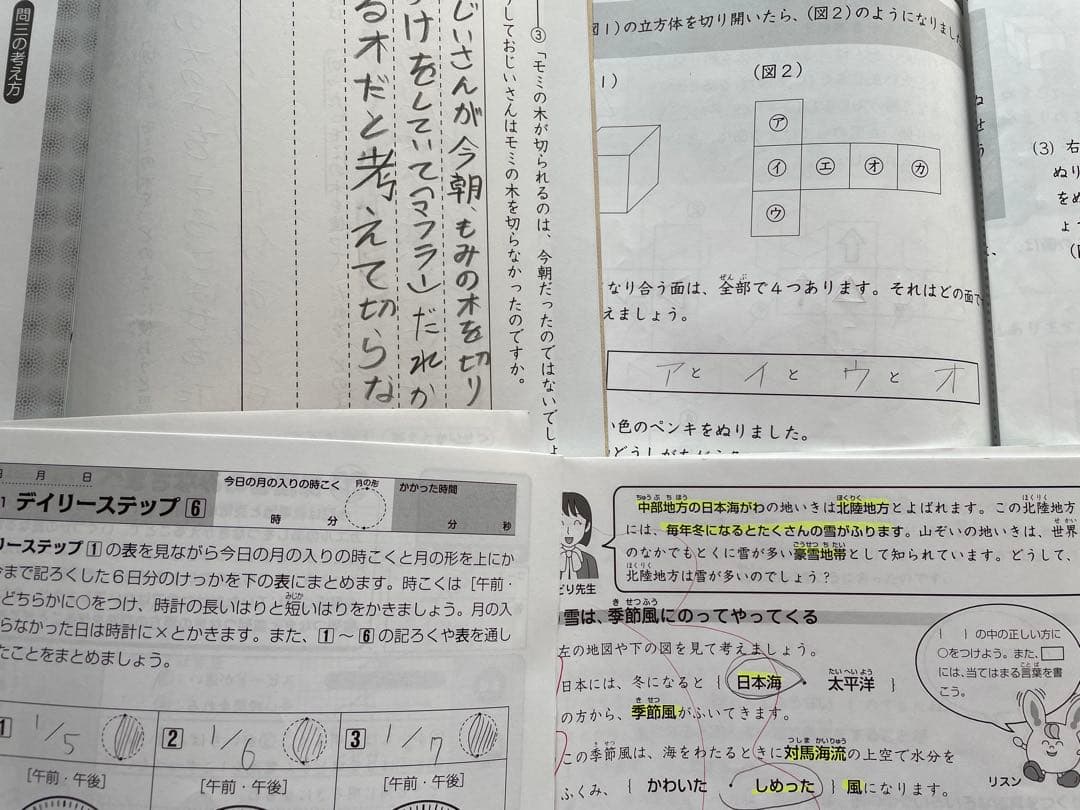 問三の考え方
③「モミの木が切られるのは、今朝だったのではないでしょ
しておじいさんはモミの木を切らなかったのですか。
じいさんが今朝、もみの木を切り
けをしていて「マフラー」だれか
るオだと考えて切らな
図1)の立方体を切り開いたら、(図2)のようになりました
1)
(図2)
ア
イ エ オ カ
ウ
なり合う面は、全部で4つあります。それはどの面で
えましょう。
ア と イ と ウ と オ
い色のペンキをぬりました。
(3) 右
ぬり
をぬ
ょう
月 日
1 デイリーステップ 6
今日の月の入りの時こく
時 分
月の形
かかった時間
分 秒
リーステップ 1 の表を見ながら今日の月の入りの時こくと月の形を上にか
今まで記ろくした6日分のけっかを下の表にまとめます。時こくは[午前・
どちらかに○をつけ、時計の長いはりと短いはりをかきましょう。月の入
らなかった日は時計に×とかきます。また、1～6の記ろくや表を通し
たことをまとめましょう。
1 1/5
2 1/6
3 1/7
[午前・午後]
[午前・午後]
[午前・午後]
中部地方の日本海がわの地いきは北陸地方とよばれます。この北陸地方
には、毎年冬になるとたくさんの雪がふります。山ぞいの地いきは、世界
のなかでもとくに雪が多い豪雪地帯として知られています。どうして、
北陸地方は雪が多いのでしょう?
どり先生
雪は、季節風にのってやってくる
左の地図や下の図を見て考えましょう。
日本には、冬になると { 日本海 ・ 太平洋 }
の方から、季節風がふいてきます。
この季節風は、海をわたるときに対馬海流の上空で水分を
ふくみ、{ かわいた ・ しめった } 風になります。
{ }の中の正しい方に
○をつけよう。また、□
には、当てはまる言葉を書
こう。
リスン